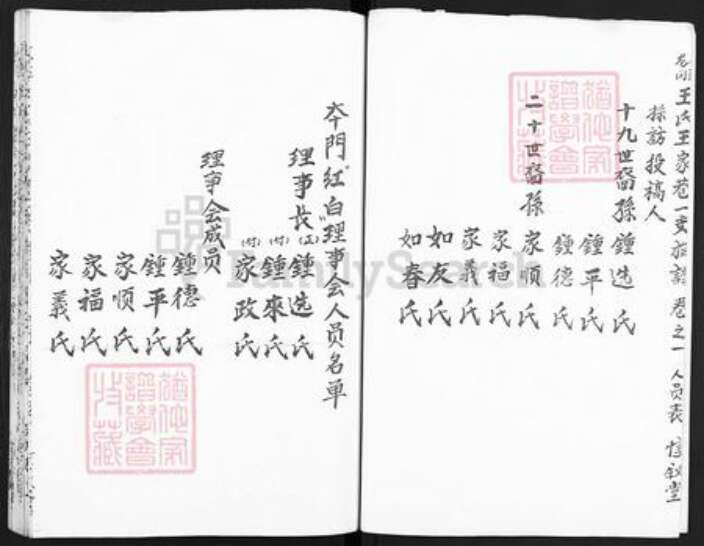 王氏王家巷一支族譜 卷之一 人员表
採訪投稿人
十九世裔孫 鍾选氏
鍾平氏
鍾德氏
二十世裔孫 家顺氏
家福氏
家義氏
如友氏
如春氏
本門"红白"理事会人员名单
理事长(正)鍾选氏
(付)鍾來氏
(付)家政氏
理事会成员
鍾德氏
鍾平氏
家顺氏
家福氏
家義氏
猶他家譜學會特藏
猶他家譜學會特藏
FamilySearch